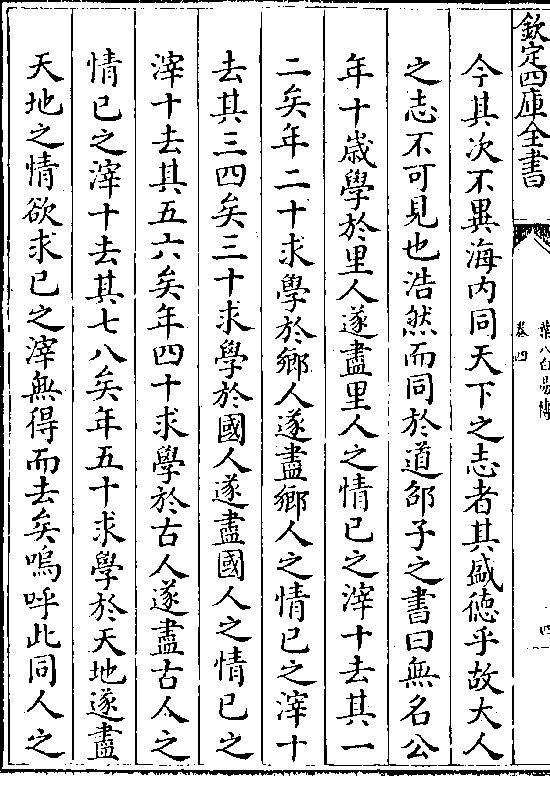 欽定四庫全書
葉八白易傳
卷四
四
今其次不異海内同天下之志者其盛徳乎故大人
之志不可見也浩然而同於道邵子之書曰無名公
年十歳學於里人遂盡里人之情已之滓十去其一
二矣年二十求學於鄉人遂盡鄉人之情已之滓十
去其三四矣三十求學於國人遂盡國人之情已之
滓十去其五六矣年四十求學於古人遂盡古人之
情已之滓十去其七八矣年五十求學於天地遂盡
天地之情欲求已之滓無得而去矣嗚呼此同人之